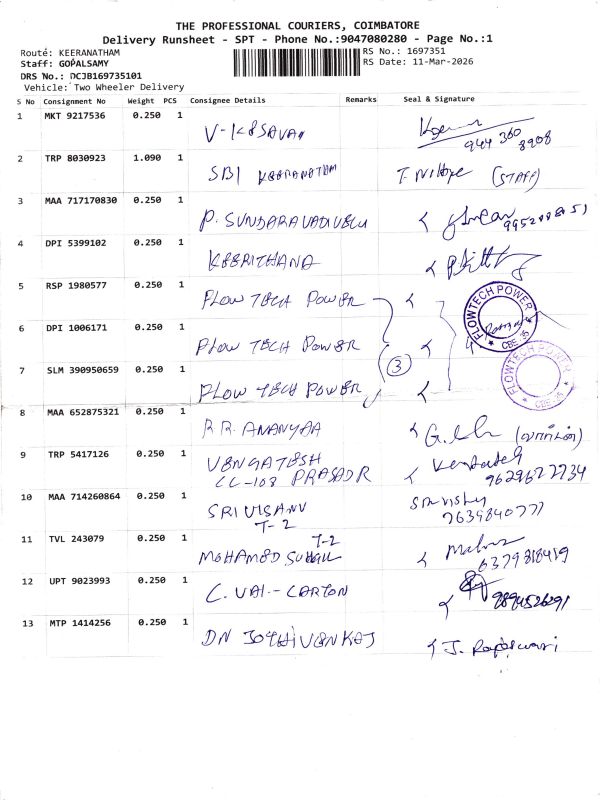 THE PROFESSIONAL COURIERS, COIMBATORE
Delivery Runsheet - SPT - Phone No.:9047080280 - Page No.:1
Route: KEERANATHAM
RS No.: 1697351
Staff: GOPALSAMY
RS Date: 11-Mar-2026
DRS No.: DCJB169735101
Vehicle: Two Wheeler Delivery
S No Consignment No Weight PCS Consignee Details Remarks Seal & Signature
1 MKT 9217536 0.250 1 V-KESAVAN
944 360 8908
2 TRP 8030923 1.090 1 SBI KEERANATHAM (STAFF)
3 MAA 717170830 0.250 1 P. SUNDARAVADIVELU
4 DPI 5399102 0.250 1 KEERTHANA
5 RSP 1980577 0.250 1 FLOW TECH POWER
FLOWTECH POWER CBE-35
6 DPI 1006171 0.250 1 FLOW TECH POWER
3
7 SLM 390950659 0.250 1 FLOW TECH POWER
FLOWTECH POWER CBE-35
8 MAA 652875321 0.250 1 R.R. ANANYAA
9 TRP 5417126 0.250 1 VENGATESH
CC-103 PRASADR 9629677734
10 MAA 714260864 0.250 1 SRI VISANU
T-2 7639840777
11 TVL 243079 0.250 1 T-2
MOHAMED 6379818419
12 UPT 9023993 0.250 1 C. VAI-- CARTON
9894526291
13 MTP 1414256 0.250 1 DN JOTHIVENKAJ J. Rajeswari